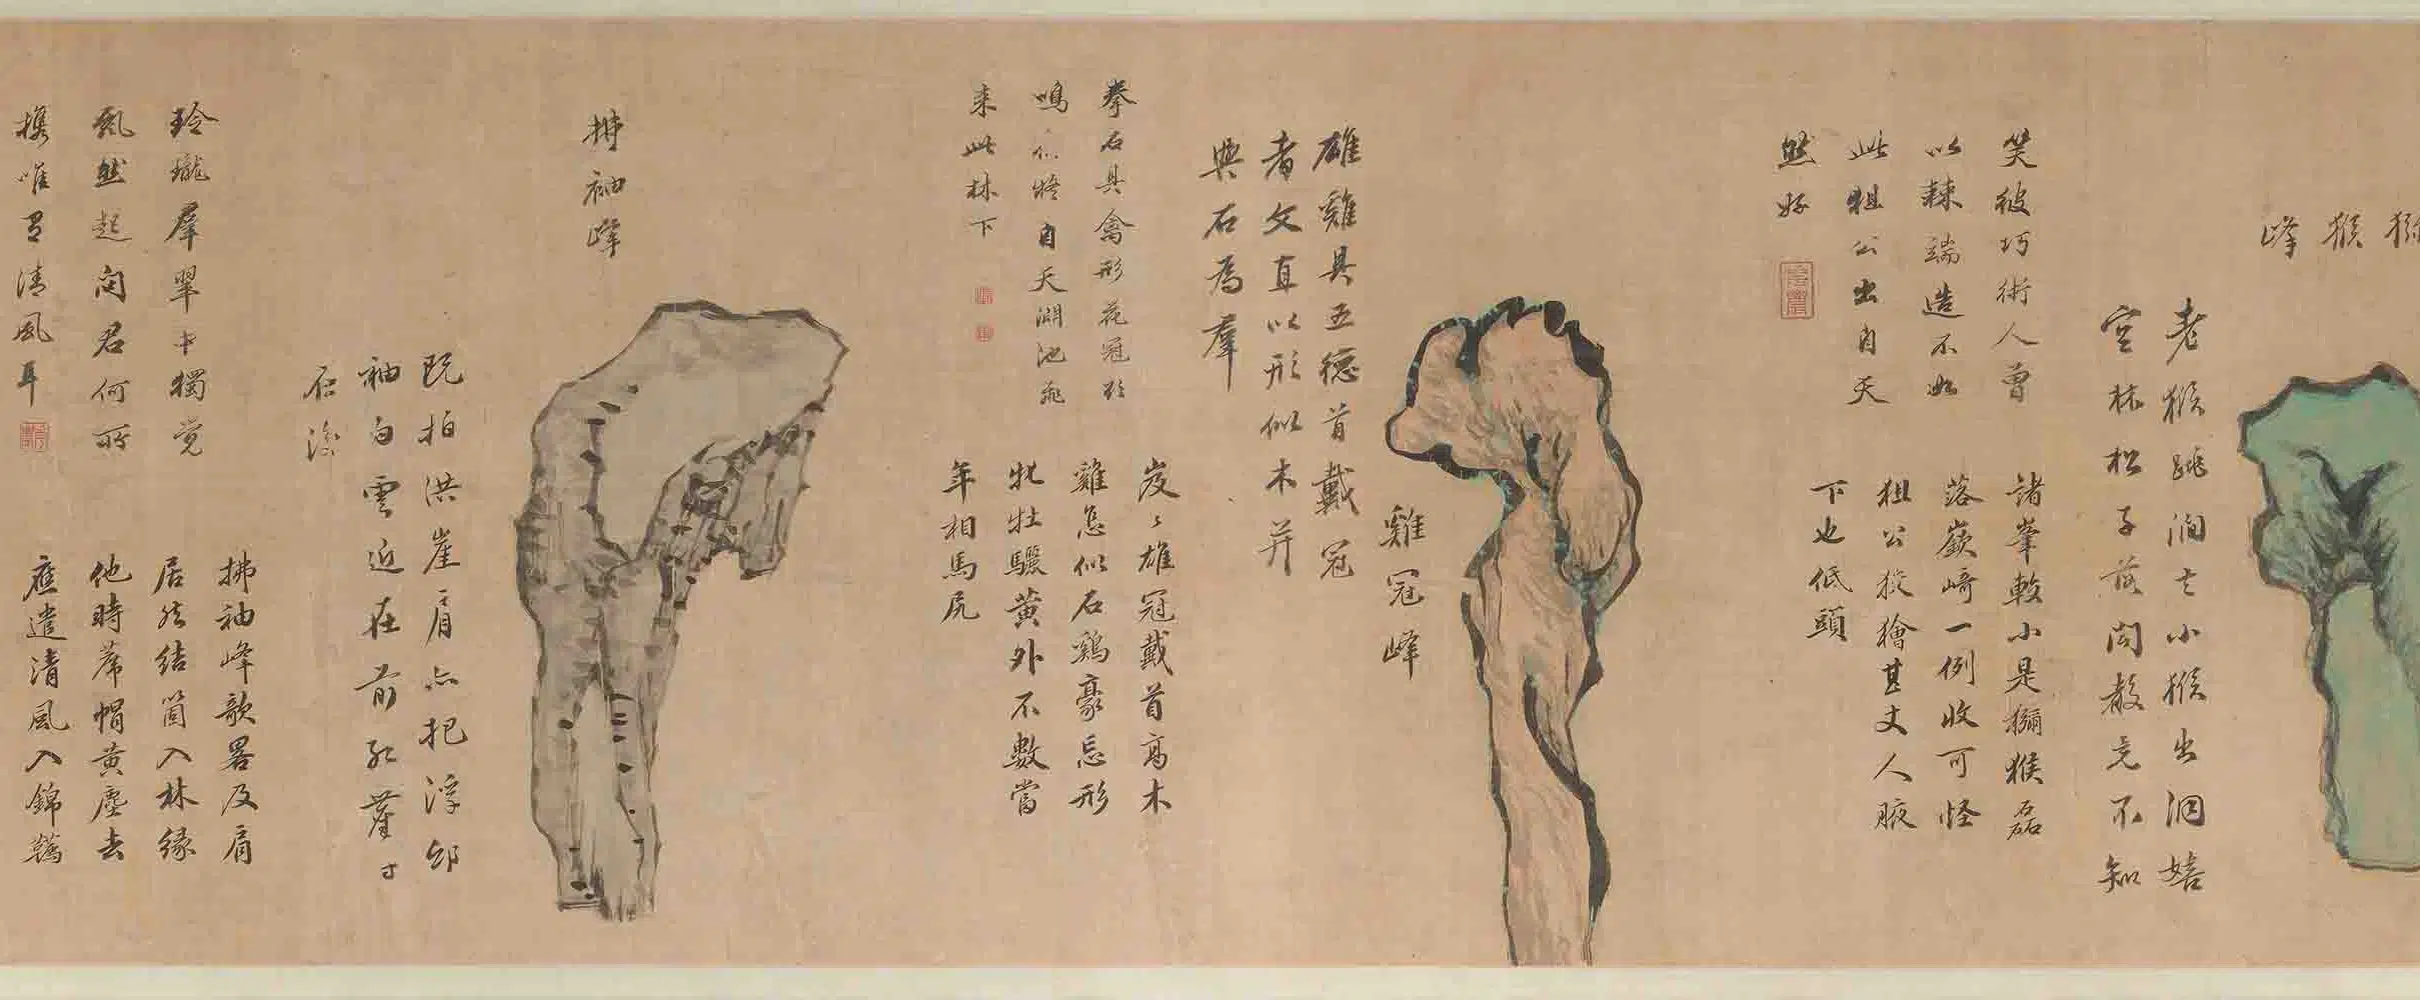 獼猴峰
老猴跳澗去小猴出洞嬉
空林松子落閑教竟不知
笑彼巧術人曾
以棘端造不如
此狙公出自天
然好
諸峯較小是獼猴磊
落嶔崎一例收可怪
狙公狡獪甚丈人腋
下也低頭
雞冠峰
雄雞具五德首戴冠
者文直以形似木并
與石為羣
拳石具禽形花冠欲
鳴似將自天湖池飛
来此林下
岌〻雄冠戴首高木
雞怎似石鷄豪忘形
牝牡驪黄外不數當
年相馬凥
拂袖峰
既拍洪崖肩亦把浮邱
袖白雲近在前
玲瓏羣翠中獨覺
飄然起問君何所
携唯有清風耳
拂袖峰歌畧及肩
居然結箇入林緣
他時席帽黄塵去
應遣清風入錦韉